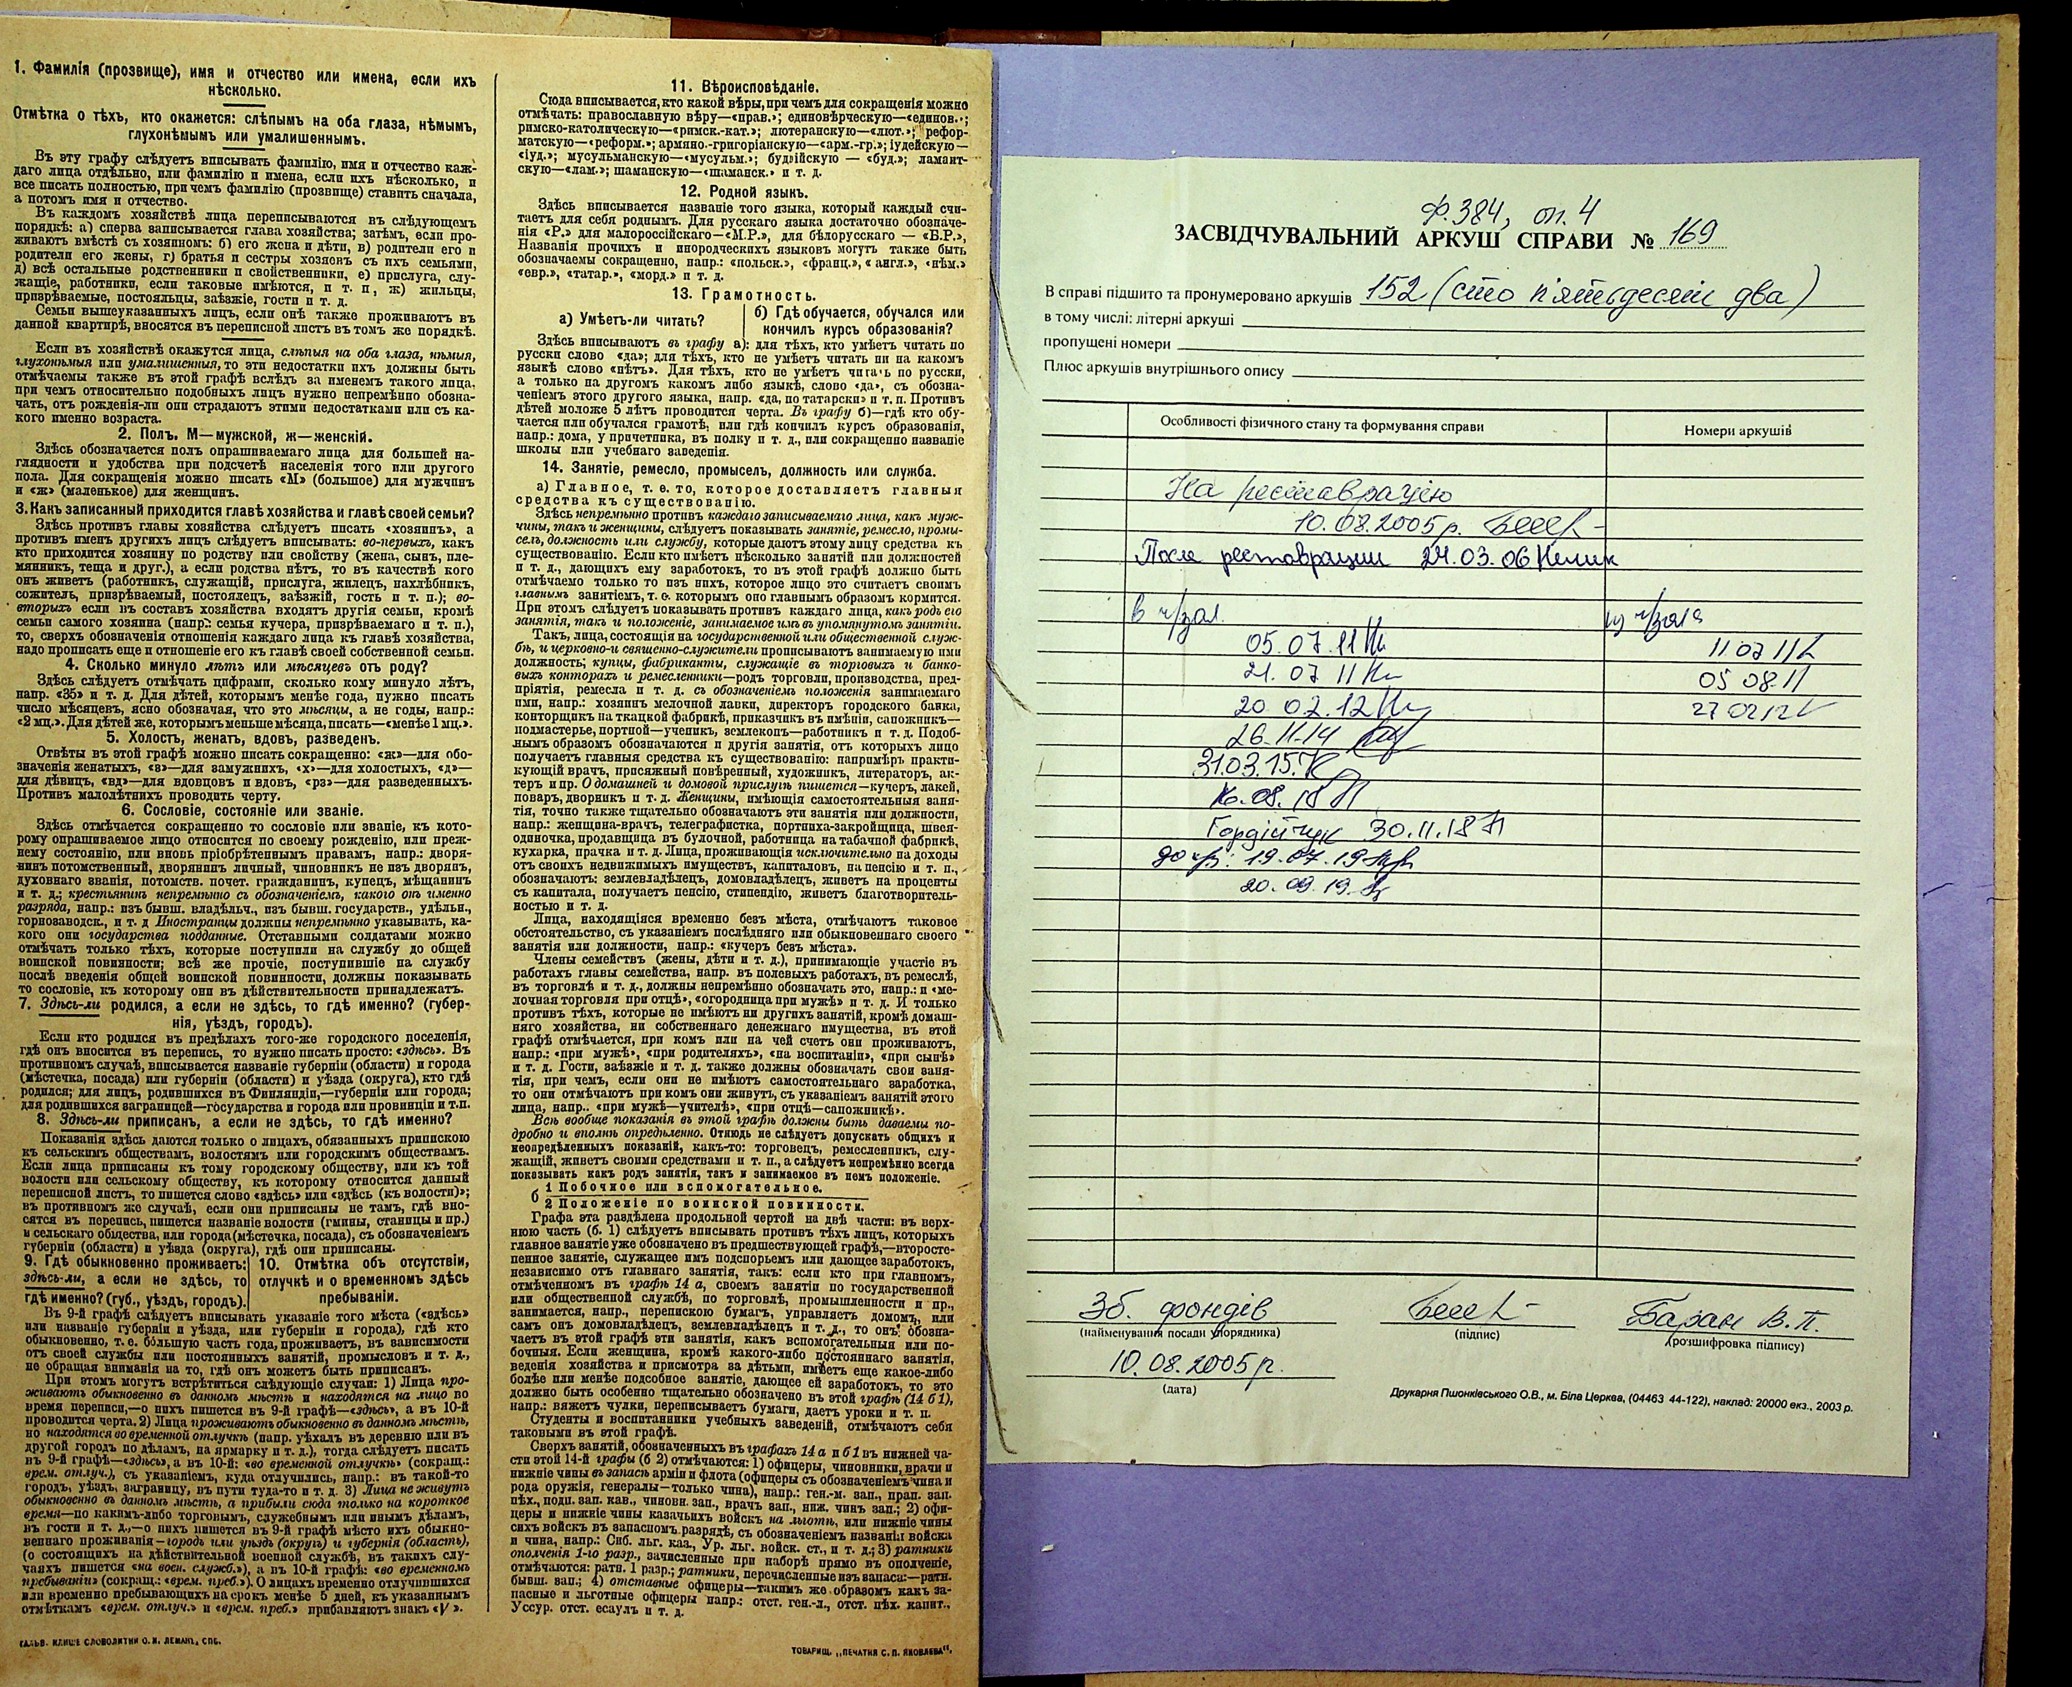 1. Фамилія (прозвище), имя и отчество или имена, если ихъ
нѣсколько.
Отмѣтка о тѣхъ, кто окажется: слѣпымъ на оба глаза, нѣмымъ,
глухонѣмымъ или умалишеннымъ.
Въ эту графу слѣдуетъ вписывать фамилію, имя и отчество каж-
даго лица отдѣльно, или фамилію и имена, если ихъ нѣсколько, и
все писать полностью, при чемъ фамилію (прозвище) ставить сначала,
а потомъ имя и отчество.
Въ каждомъ хозяйствѣ лица переписываются въ слѣдующемъ
порядкѣ: а) сперва записывается глава хозяйства; затѣмъ, если про-
живаютъ вмѣстѣ съ хозяиномъ: б) его жена и дѣти, в) родители его и
родители его жены, г) братья и сестры хозяевъ съ ихъ семьями,
д) всѣ остальные родственники и свойственники, е) прислуга, слу-
жащіе, работники, если таковые имѣются, и т. п., ж) жильцы,
призрѣваемые, постояльцы, заѣзжіе, гости и т. д.
Семьи вышеуказанныхъ лицъ, если онѣ также проживаютъ въ
данной квартирѣ, вносятся въ переписной листъ въ томъ же порядкѣ.
Если въ хозяйствѣ окажутся лица, слѣпыя на оба глаза, нѣмыя,
глухонѣмыя или умалишенныя, то эти недостатки ихъ должны быть
отмѣчаемы также въ этой графѣ вслѣдъ за именемъ такого лица,
при чемъ относительно подобныхъ лицъ нужно непремѣнно обозна-
чать, отъ рожденія-ли они страдаютъ этими недостатками или съ ка-
кого именно возраста.
2. Полъ. М—мужской, ж—женскій.
Здѣсь обозначается полъ опрашиваемаго лица для большей на-
глядности и удобства при подсчетѣ населенія того или другого
пола. Для сокращенія можно писать «М» (большое) для мужчинъ
и «ж» (маленькое) для женщинъ.
3. Какъ записанный приходится главѣ хозяйства и главѣ своей семьи?
Здѣсь противъ главы хозяйства слѣдуетъ писать «хозяинъ», а
противъ именъ другихъ лицъ слѣдуетъ вписывать: во-первыхъ, какъ
кто приходится хозяину по родству или свойству (жена, сынъ, пле-
мянникъ, теща и друг.), а если родства нѣтъ, то въ качествѣ кого
онъ живетъ (работникъ, служащій, прислуга, жилецъ, нахлѣбникъ,
сожитель, призрѣваемый, постоялецъ, заѣзжій, гость и т. п.); во-
вторыхъ если въ составъ хозяйства входятъ другія семьи, кромѣ
семьи самого хозяина (напр.: семья кучера, призрѣваемаго и т. п.),
то, сверхъ обозначенія отношенія каждаго лица къ главѣ хозяйства,
надо прописать еще и отношеніе его къ главѣ своей собственной семьи.
4. Сколько минуло лѣтъ или мѣсяцевъ отъ роду?
Здѣсь слѣдуетъ отмѣчать цифрами, сколько кому минуло лѣтъ,
напр. «35» и т. д. Для дѣтей, которымъ менѣе года, нужно писать
число мѣсяцевъ, ясно обозначая, что это мѣсяцы, а не годы, напр.:
«2 мц.». Для дѣтей же, которымъ меньше мѣсяца, писать—«менѣе 1 мц.».
5. Холостъ, женатъ, вдовъ, разведенъ.
Отвѣты въ этой графѣ можно писать сокращенно: «ж»—для обо-
значенія женатыхъ, «з»—для замужнихъ, «х»—для холостыхъ, «д»—
для дѣвицъ, «вд»—для вдовцовъ и вдовъ, «рз»—для разведенныхъ.
Противъ малолѣтнихъ проводить черту.
6. Сословіе, состояніе или званіе.
Здѣсь отмѣчается сокращенно то сословіе или званіе, къ кото-
рому опрашиваемое лицо относится по своему рожденію, или преж-
нему состоянію, или вновь пріобрѣтеннымъ правамъ, напр.: дворя-
нинъ потомственный, дворянинъ личный, чиновникъ не изъ дворянъ,
духовнаго званія, потомств. почет. гражданинъ, купецъ, мѣщанинъ
и т. д.; крестьянинъ непремѣнно съ обозначеніемъ, какого онъ именно
разряда, напр.: изъ бывш. владѣльч., изъ бывш. государств., удѣльн.,
горнозаводск., и т. д Иностранцы должны непремѣнно указывать, ка-
кого они государства подданные. Отставными солдатами можно
отмѣчать только тѣхъ, которые поступили на службу до общей
воинской повинности; всѣ же прочіе, поступившіе на службу
послѣ введенія общей воинской повинности, должны показывать
то сословіе, къ которому они въ дѣйствительности принадлежатъ.
7. Здѣсь-ли родился, а если не здѣсь, то гдѣ именно? (губер-
нія, уѣздъ, городъ).
Если кто родился въ предѣлахъ того-же городского поселенія,
гдѣ онъ вносится въ перепись, то нужно писать просто: «здѣсь». Въ
противномъ случаѣ, вписывается названіе губерніи (области) и города
(мѣстечка, посада) или губерніи (области) и уѣзда (округа), кто гдѣ
родился; для лицъ, родившихся въ Финляндіи,—губерніи или города;
для родившихся заграницей—государства и города или провинціи и т.п.
8. Здѣсь-ли приписанъ, а если не здѣсь, то гдѣ именно?
Показанія здѣсь даются только о лицахъ, обязанныхъ припискою
къ сельскимъ обществамъ, волостямъ или городскимъ обществамъ.
Если лица приписаны къ тому городскому обществу, или къ той
волости или сельскому обществу, къ которому относится данный
переписной листъ, то пишется слово «здѣсь» или «здѣсь (къ волости)»;
въ противномъ же случаѣ, если они приписаны не тамъ, гдѣ вно-
сятся въ перепись, пишется названіе волости (гмины, станицы и пр.)
и сельскаго общества, или города (мѣстечка, посада), съ обозначеніемъ
губерніи (области) и уѣзда (округа), гдѣ они приписаны.
9. Гдѣ обыкновенно проживаетъ:
здѣсь-ли, а если не здѣсь, то
гдѣ именно? (губ., уѣздъ, городъ).
10. Отмѣтка объ отсутствіи,
отлучкѣ и о временномъ здѣсь
пребываніи.
Въ 9-й графѣ слѣдуетъ вписывать указаніе того мѣста («здѣсь»
или названіе губерніи и уѣзда, или губерніи и города), гдѣ кто
обыкновенно, т. е. бо́льшую часть года, проживаетъ, въ зависимости
отъ своей службы или постоянныхъ занятій, промысловъ и т. д.,
не обращая вниманія на то, гдѣ онъ можетъ быть приписанъ.
При этомъ могутъ встрѣтиться слѣдующіе случаи: 1) Лица про-
живаютъ обыкновенно въ данномъ мѣстѣ и находятся на лицо во
время переписи,—о нихъ пишется въ 9-й графѣ—«здѣсь», а въ 10-й
проводится черта. 2) Лица проживаютъ обыкновенно въ данномъ мѣстѣ,
но находятся во временной отлучкѣ (напр. уѣхалъ въ деревню или въ
другой городъ по дѣламъ, на ярмарку и т. д.), тогда слѣдуетъ писать
въ 9-й графѣ—«здѣсь», а въ 10-й: «во временной отлучкѣ» (сокращ.:
врем. отлуч.), съ указаніемъ, куда отлучились, напр.: въ такой-то
городъ, уѣздъ, заграницу, въ пути туда-то и т. д. 3) Лица не живутъ
обыкновенно въ данномъ мѣстѣ, а прибыли сюда только на короткое
время—по какимъ-либо торговымъ, служебнымъ или инымъ дѣламъ,
въ гости и т. д.,—о нихъ пишется въ 9-й графѣ мѣсто ихъ обыкно-
веннаго проживанія—городъ или уѣздъ (округъ) и губернія (область),
(о состоящихъ на дѣйствительной военной службѣ, въ такихъ слу-
чаяхъ пишется «на воен. службѣ»), а въ 10-й графѣ: «во временномъ
пребываніи» (сокращ.: «врем. преб.»). О лицахъ временно отлучившихся
или временно пребывающихъ на срокъ менѣе 5 дней, къ указаннымъ
отмѣткамъ «врем. отлуч.» и «врем. преб.» прибавляютъ знакъ «V».
ГАЛЬВ. КЛИШЕ СЛОВОЛИТНИ О. И. ЛЕМАНЪ, СПБ.
11. Вѣроисповѣданіе.
Сюда вписывается, кто какой вѣры, при чемъ для сокращенія можно
отмѣчать: православную вѣру—«прав.»; единовѣрческую—«единов.»;
римско-католическую—«римск.-кат.»; лютеранскую—«лют.»; рефор-
матскую—«реформ.»; армяно.-григоріанскую—«арм.-гр.»; іудейскую—
«іуд.»; мусульманскую—«мусульм.»; буддійскую — «буд.»; ламаит-
скую—«лам.»; шаманскую—«шаманск.» и т. д.
12. Родной языкъ.
Здѣсь вписывается названіе того языка, который каждый счи-
таетъ для себя роднымъ. Для русскаго языка достаточно обозначе-
нія «Р.» для малороссійскаго—«М.Р.», для бѣлорусскаго — «Б.Р.»,
Названія прочихъ и инородческихъ языковъ могутъ также быть
обозначаемы сокращенно, напр.: «польск.», «франц.», « англ.», «нѣм.»
«евр.», «татар.», «морд.» и т. д.
13. Грамотность.
а) Умѣетъ-ли читать?
б) Гдѣ обучается, обучался или
кончилъ курсъ образованія?
Здѣсь вписываютъ въ графу а): для тѣхъ, кто умѣетъ читать по
русски слово «да»; для тѣхъ, кто не умѣетъ читать ни на какомъ
языкѣ слово «нѣтъ». Для тѣхъ, кто не умѣетъ читать по русски,
а только на другомъ какомъ либо языкѣ, слово «да», съ обозна-
ченіемъ этого другого языка, напр. «да, по татарски» и т. п. Противъ
дѣтей моложе 5 лѣтъ проводится черта. Въ графу б)—гдѣ кто обу-
чается или обучался грамотѣ, или гдѣ кончилъ курсъ образованія,
напр.: дома, у причетника, въ полку и т. д., или сокращенно названіе
школы или учебнаго заведенія.
14. Занятіе, ремесло, промыселъ, должность или служба.
а) Главное, т. е. то, которое доставляетъ главныя
средства къ существованію.
Здѣсь непремѣнно противъ каждаго записываемаго лица, какъ муж-
чины, такъ и женщины, слѣдуетъ показывать занятіе, ремесло, промы-
селъ, должность или службу, которые даютъ этому лицу средства къ
существованію. Если кто имѣетъ нѣсколько занятій или должностей
и т. д., дающихъ ему заработокъ, то въ этой графѣ должно быть
отмѣчаемо только то изъ нихъ, которое лицо это считаетъ своимъ
главнымъ занятіемъ, т. е. которымъ оно главнымъ образомъ кормится.
При этомъ слѣдуетъ показывать противъ каждаго лица, какъ родъ его
занятія, такъ и положеніе, занимаемое имъ въ упомянутомъ занятіи.
Такъ, лица, состоящія на государственной или общественной служ-
бѣ, и церковно-и священно-служители прописываютъ занимаемую ими
должность; купцы, фабриканты, служащіе въ торговыхъ и банко-
выхъ конторахъ и ремесленники—родъ торговли, производства, пред-
пріятія, ремесла и т. д. съ обозначеніемъ положенія занимаемаго
ими, напр.: хозяинъ мелочной лавки, директоръ городского банка,
конторщикъ на ткацкой фабрикѣ, приказчикъ въ имѣніи, сапожникъ—
подмастерье, портной—ученикъ, землекопъ—работникъ и т. д. Подоб-
нымъ образомъ обозначаются и другія занятія, отъ которыхъ лицо
получаетъ главныя средства къ существованію: напримѣръ практи-
кующій врачъ, присяжный повѣренный, художникъ, литераторъ, ак-
теръ и пр. О домашней и домовой прислугѣ пишется—кучеръ, лакей,
поваръ, дворникъ и т. д. Женщины, имѣющія самостоятельныя заня-
тія, точно также тщательно обозначаютъ эти занятія или должности,
напр.: женщина-врачъ, телеграфистка, портниха-закройщица, швея-
одиночка, продавщица въ булочной, работница на табачной фабрикѣ,
кухарка, прачка и т. д. Лица, проживающія исключительно на доходы
отъ своихъ недвижимыхъ имуществъ, капиталовъ, на пенсію и т. п.,
обозначаютъ: землевладѣлецъ, домовладѣлецъ, живетъ на проценты
съ капитала, получаетъ пенсію, стипендію, живетъ благотворитель-
ностью и т. д.
Лица, находящіяся временно безъ мѣста, отмѣчаютъ таковое
обстоятельство, съ указаніемъ послѣдняго или обыкновеннаго своего
занятія или должности, напр.: «кучеръ безъ мѣста».
Члены семействъ (жены, дѣти и т. д.), принимающіе участіе въ
работахъ главы семейства, напр. въ полевыхъ работахъ, въ ремеслѣ,
въ торговлѣ и т. д., должны непремѣнно обозначать это, напр.: и «ме-
лочная торговля при отцѣ», «огородница при мужѣ» и т. д. И только
противъ тѣхъ, которые не имѣютъ ни другихъ занятій, кромѣ домаш-
няго хозяйства, ни собственнаго денежнаго имущества, въ этой
графѣ отмѣчается, при комъ или на чей счетъ они проживаютъ,
напр.: «при мужѣ», «при родителяхъ», «на воспитаніи», «при сынѣ»
и т. д. Гости, заѣзжіе и т. д. также должны обозначать свои заня-
тія, при чемъ, если они не имѣютъ самостоятельнаго заработка,
то они отмѣчаютъ при комъ они живутъ, съ указаніемъ занятій этого
лица, напр.. «при мужѣ—учителѣ», «при отцѣ—сапожникѣ».
Всѣ вообще показанія въ этой графѣ должны быть даваемы по-
дробно и вполнѣ опредѣленно. Отнюдь не слѣдуетъ допускать общихъ и
неопредѣленныхъ показаній, какъ-то: торговецъ, ремесленникъ, слу-
жащій, живетъ своими средствами и т. п., а слѣдуетъ непремѣнно всегда
показывать какъ родъ занятія, такъ и занимаемое въ немъ положеніе.
б 1 Побочное или вспомогательное.
2 Положеніе по воинской повинности.
Графа эта раздѣлена продольной чертой на двѣ части: въ верх-
нюю часть (б. 1) слѣдуетъ вписывать противъ тѣхъ лицъ, которыхъ
главное занятіе уже обозначено въ предшествующей графѣ,—второсте-
пенное занятіе, служащее имъ подспорьемъ или дающее заработокъ,
независимо отъ главнаго занятія, такъ: если кто при главномъ,
отмѣченномъ въ графѣ 14 а, своемъ занятіи по государственной
или общественной службѣ, по торговлѣ, промышленности и пр.,
занимается, напр., перепискою бумагъ, управляетъ домомъ, или
самъ онъ домовладѣлецъ, землевладѣлецъ и т. д., то онъ обозна-
чаетъ въ этой графѣ эти занятія, какъ вспомогательныя или по-
бочныя. Если женщина, кромѣ какого-либо постояннаго занятія,
веденія хозяйства и присмотра за дѣтьми, имѣетъ еще какое-либо
болѣе или менѣе подсобное занятіе, дающее ей заработокъ, то это
должно быть особенно тщательно обозначено въ этой графѣ (14 б 1),
напр.: вяжетъ чулки, переписываетъ бумаги, даетъ уроки и т. п.
Студенты и воспитанники учебныхъ заведеній, отмѣчаютъ себя
таковыми въ этой графѣ.
Сверхъ занятій, обозначенныхъ въ графахъ 14 а и б 1 въ нижней ча-
сти этой 14-й графы (б 2) отмѣчаются: 1) офицеры, чиновники, врачи и
нижніе чины въ запасѣ арміи и флота (офицеры съ обозначеніемъ чина и
рода оружія, генералы—только чина), напр.: ген.-м. зап., прап. зап.
пѣх., подп. зап. кав., чиновн. зап., врачъ зап., ниж. чинъ зап.; 2) офи-
церы и нижніе чины казачьихъ войскъ на льготѣ, или нижніе чины
сихъ войскъ въ запасномъ разрядѣ, съ обозначеніемъ названія войска
и чина, напр.: Сиб. льг. каз., Ур. льг. войск. ст., и т. д.; 3) ратники
ополченія 1-го разр., зачисленные при наборѣ прямо въ ополченіе,
отмѣчаются: ратн. 1 разр.; ратники, перечисленные изъ запаса:—ратн.
бывш. зап.; 4) отставные офицеры—такимъ же образомъ какъ за-
пасные и льготные офицеры напр.: отст. ген.-л., отст. пѣх. капит.,
Уссур. отст. есаулъ и т. д.
ТОВАРИЩ. „ПЕЧАТНЯ С. П. ЯКОВЛЕВА".
Ф. 384, оп. 4
ЗАСВІДЧУВАЛЬНИЙ АРКУШ СПРАВИ № 169
В справі підшито та пронумеровано аркушів 152 (сто п'ятьдесят два)
в тому числі: літерні аркуші
пропущені номери
Плюс аркушів внутрішнього опису
Особливості фізичного стану та формування справи
Номери аркушів
На реставрацію
10.08.2005р.
После реставрации 24.03.06
в ч/зал. из ч/зала
05.07.11 11 07 11
21.07 11 05 08 11
20 02.12 27 02 12
26.11.14
31.03.15.
16.08.18
Гордійчук 30.11.18
19.07.19
20.09.19
Зб. фондів Баран В.П.
(найменування посади упорядника) (підпис) (розшифровка підпису)
10.08.2005р.
(дата)
Друкарня Пшонківського О.В., м. Біла Церква, (04463 44-122), наклад: 20000 екз., 2003 р.